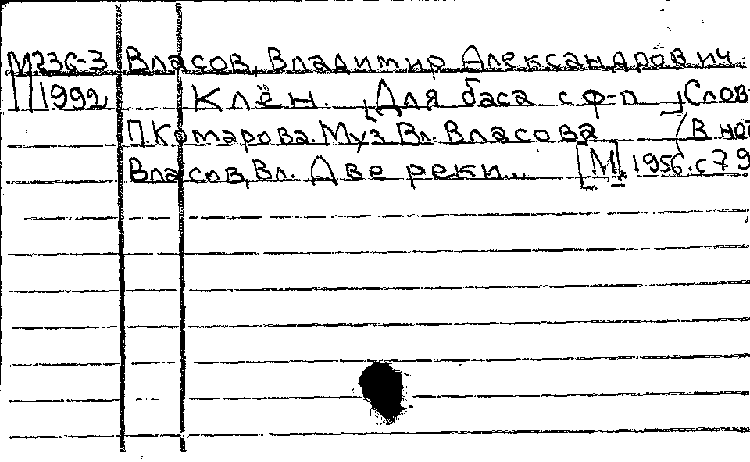 М236-3 Власов, Владимир Александрович.
1992 Клён. [Для баса с ф-п] Слов
П. Комарова. Муз. Вл. Власова (В нот
Власов, Вл. Две реки... [М], 1956. с 79